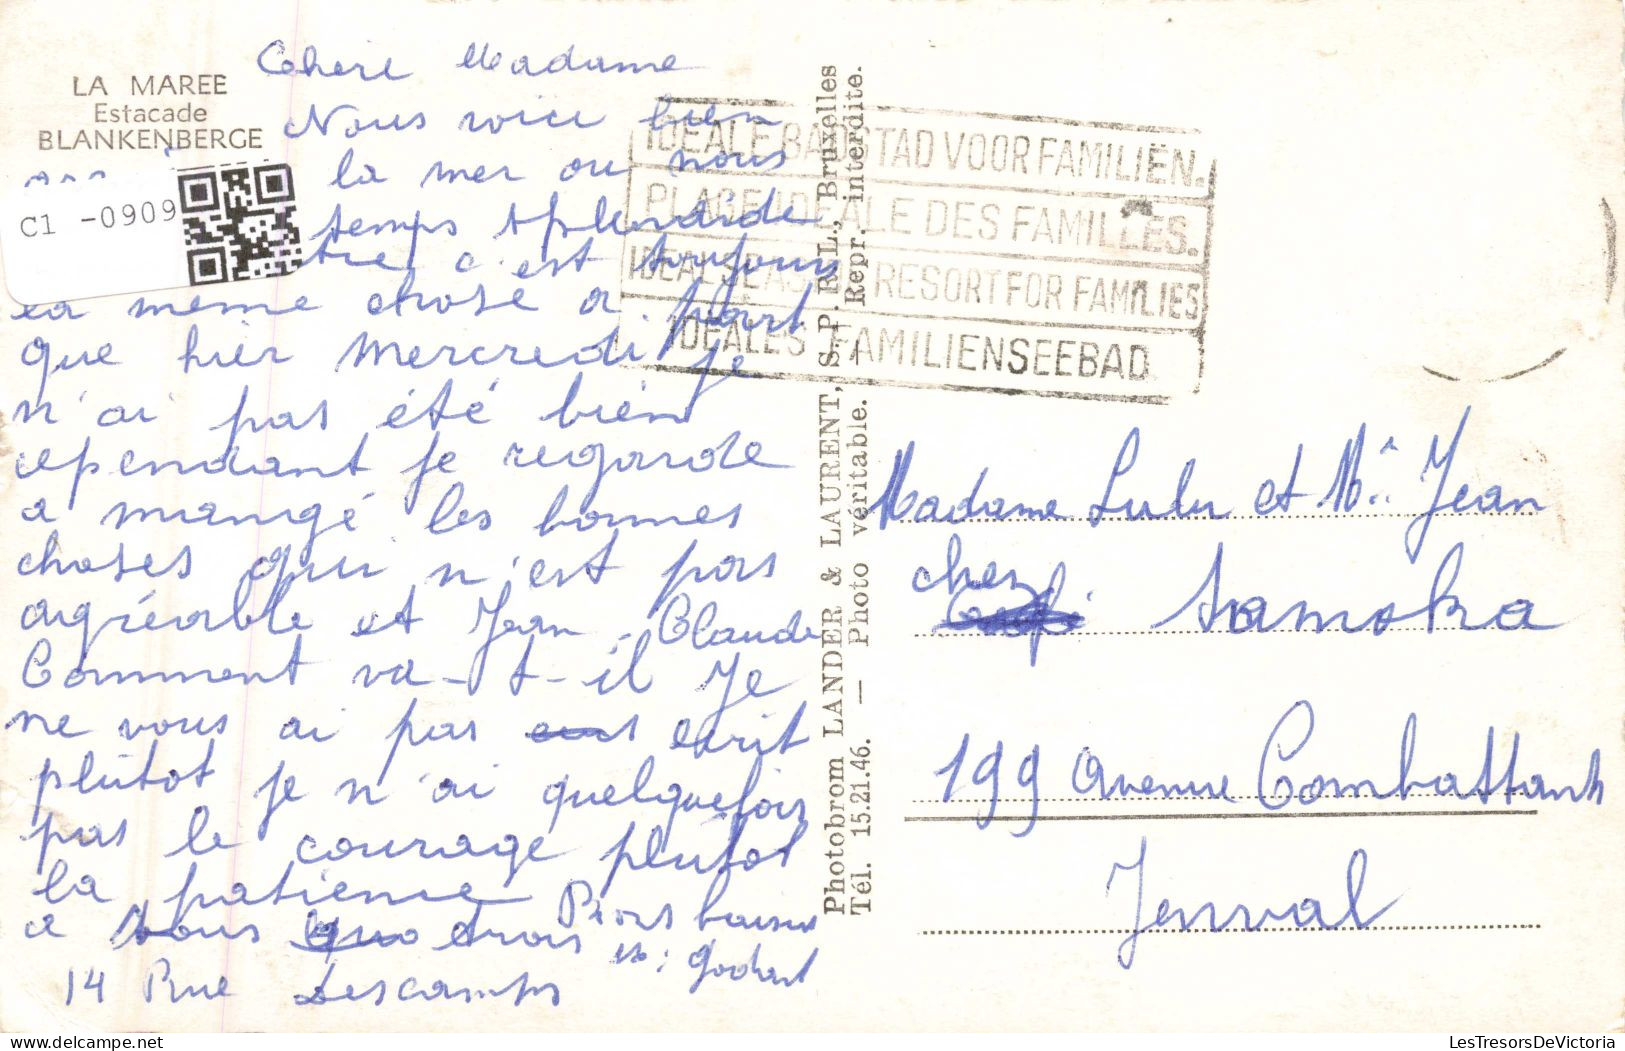 LA MAREE
Estacade
BLANKENBERGE
C1 -0909
Chere Madame
Nous voici bien
la mer ou nous
temps splendide
c'est toujours
la meme chose a part
que hier Mercredi je
n'ai pas été bien
cependant je regarde
a mangé les bonnes
choses qui n'est pas
agréable et Jean-Claude
Comment va-t-il Je
ne vous ai pas ecrit
plûtot je n'ai quelquefois
pas le courage plûtot
la patience
a vous trois baisers
14 Rue Descamps
Photobrom LANDER & LAURENT, S. P. R. L., Bruxelles
Tél. 15.21.46. — Photo véritable. — Repr. interdite.
IDEALE BADSTAD VOOR FAMILIËN.
PLAGE IDEALE DES FAMILLES.
IDEAL SEASIDE RESORT FOR FAMILIES
IDEALES FAMILIENSEEBAD
Madame Lulu et Mr Jean
chez Samoka
199 Avenue Combattants
Genval
LesTresorsDeVictoria